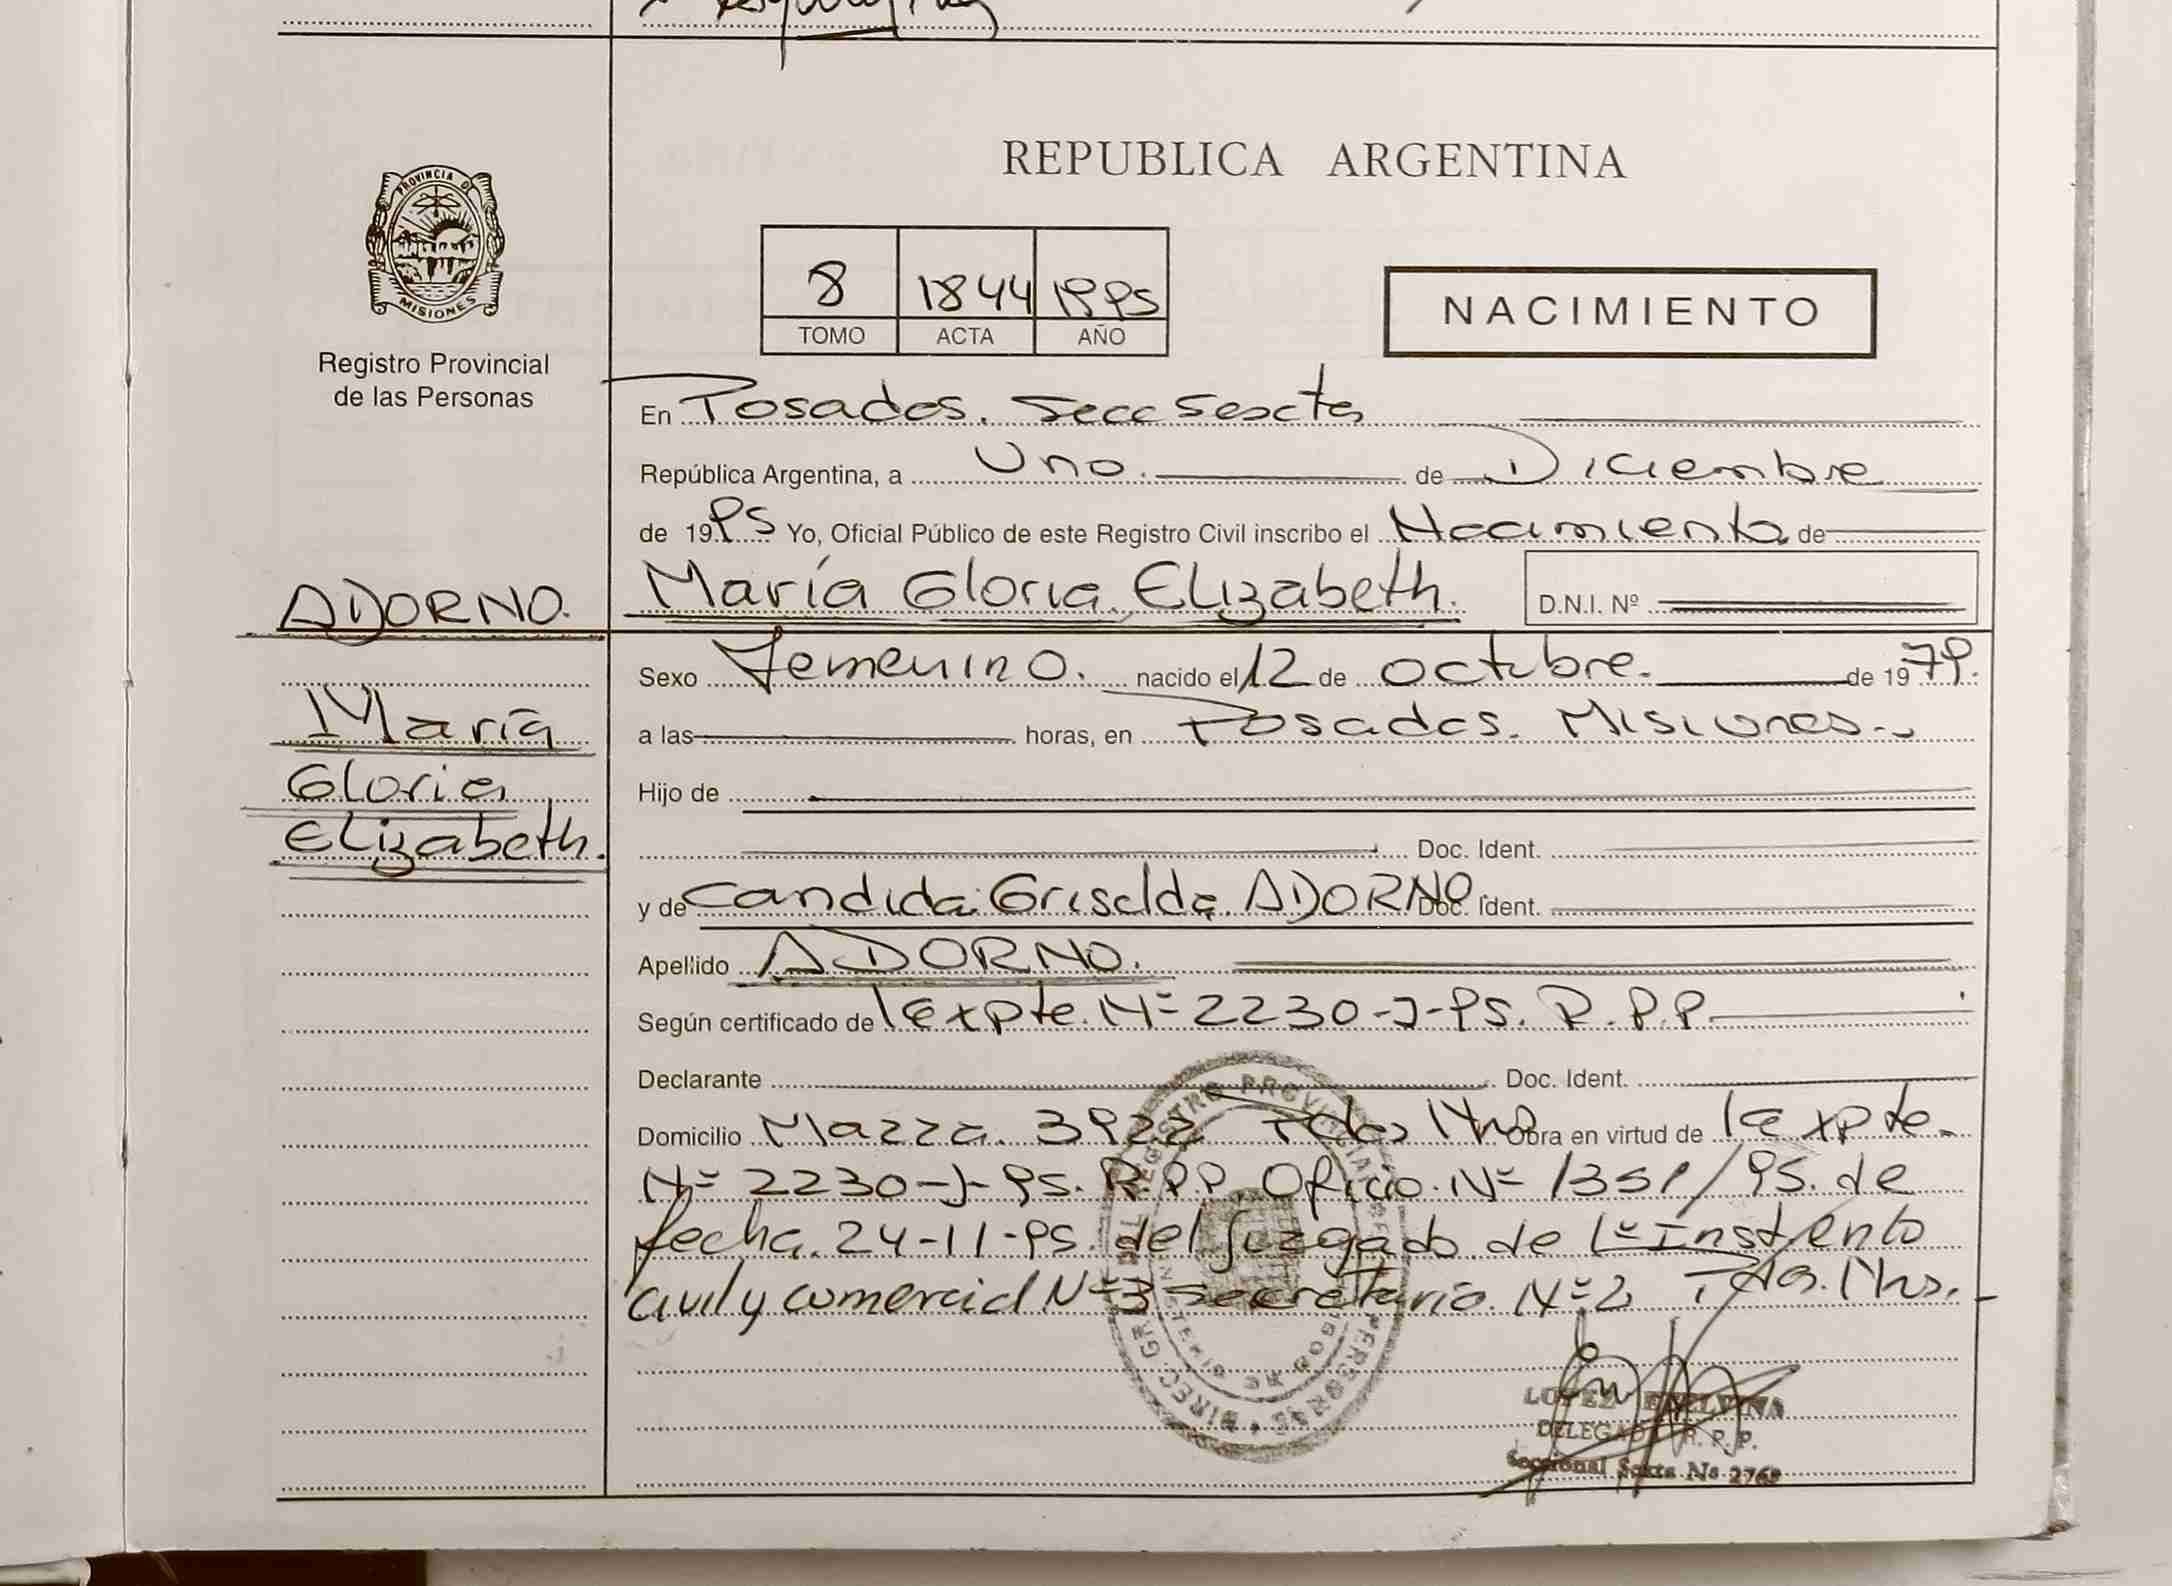 PROVINCIA DE
MISIONES
Registro Provincial
de las Personas
REPUBLICA ARGENTINA
8 1844 1995
TOMO ACTA AÑO
NACIMIENTO
En Posadas. Secc Sexcta
República Argentina, a Uno. de Diciembre
de 1995 Yo, Oficial Público de este Registro Civil inscribo el Nacimiento de
ADORNO. María Gloria Elizabeth. D.N.I. Nº
Sexo Femenino. nacido el 12 de octubre. de 1979.
María
a las horas, en Posadas. Misiones.
Gloria
Hijo de
Elizabeth.
Doc. Ident.
y de Candida Griselda ADORNO Doc. Ident.
Apellido ADORNO.
Según certificado de Expte. Nº 2230-J-95. R.P.P.
Declarante Doc. Ident.
Domicilio Mazza. 3922 Pdas Mnes Obra en virtud de Expte.
Nº 2230-J-95. R.P.P. Oficio. Nº 1359/95. de
fecha. 24-11-95. del Juzgado de 1º
Civil y Comercial Nº 3 Secretaria Nº 2 Pdas. Mns.
LOPEZ
DELEGADA R. R. P.
Seccional Sexta